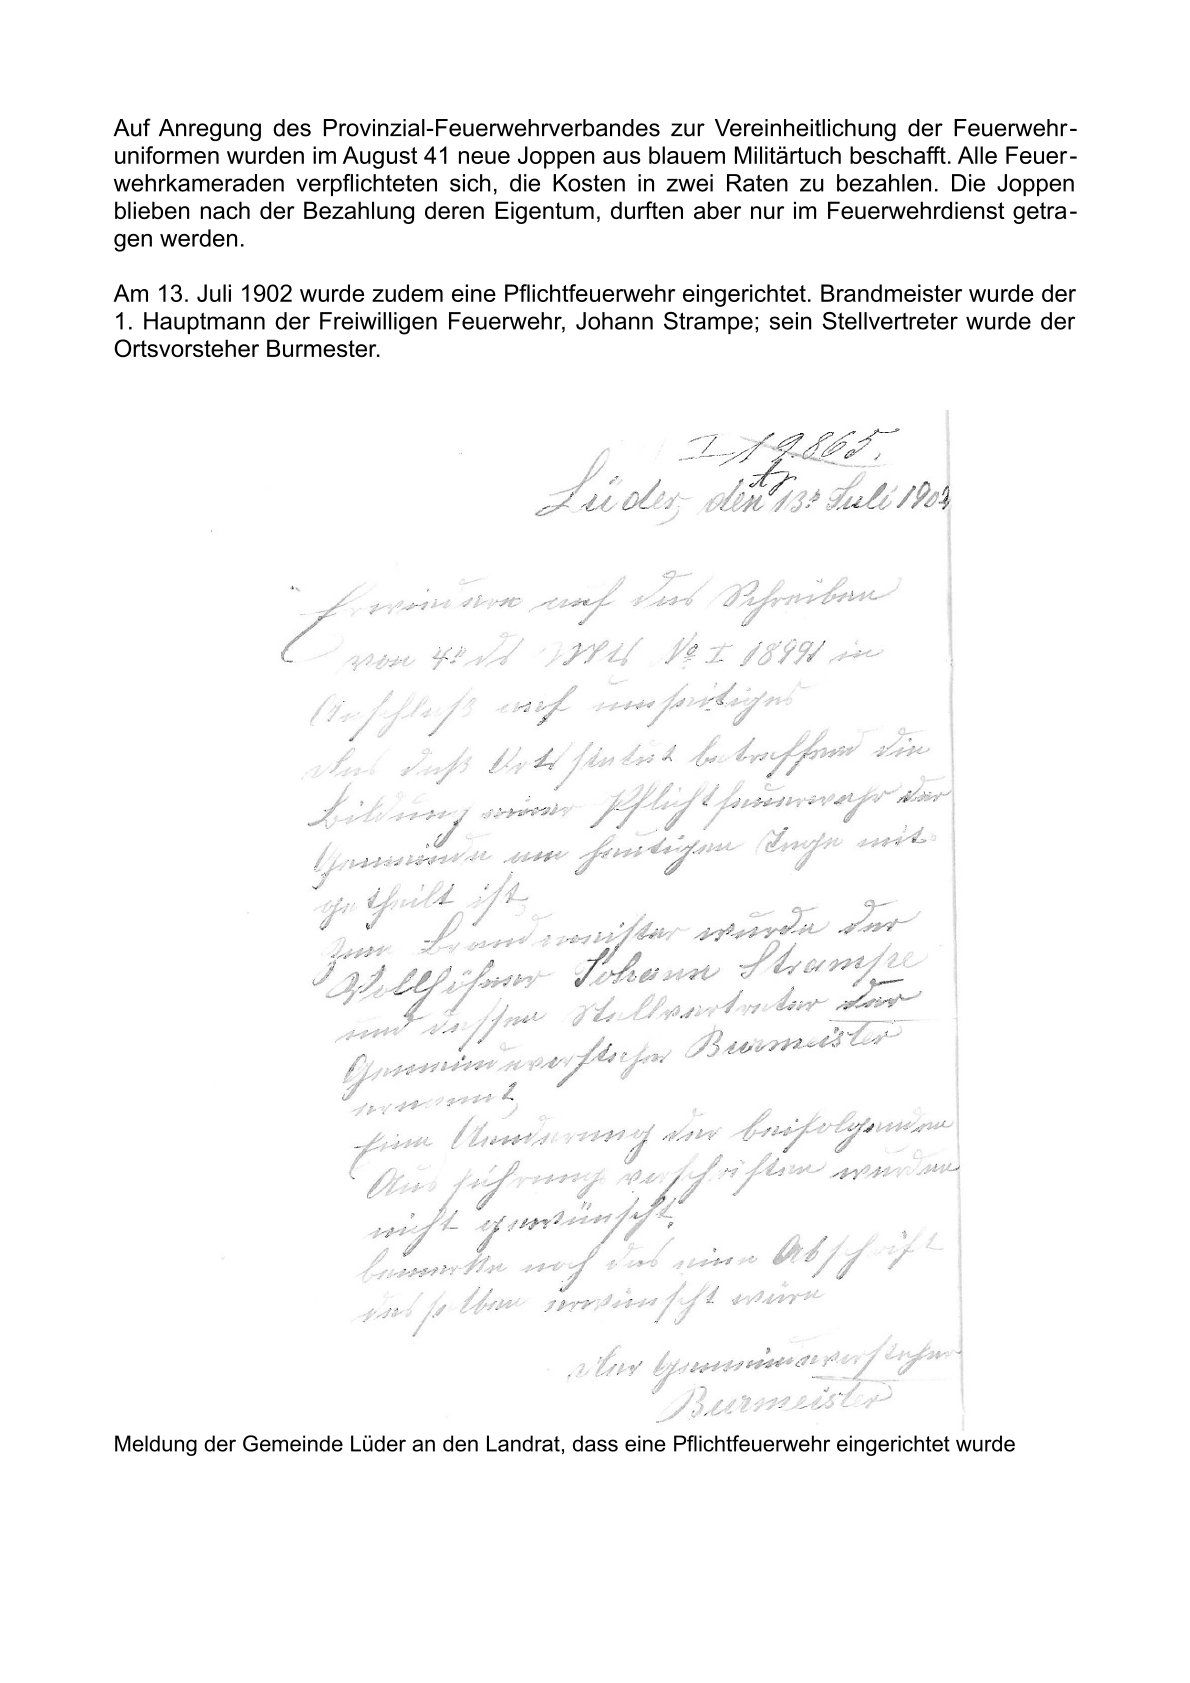 Auf Anregung des Provinzial-Feuerwehrverbandes zur Vereinheitlichung der Feuerwehr-
uniformen wurden im August 41 neue Joppen aus blauem Militärtuch beschafft. Alle Feuer-
wehrkameraden verpflichteten sich, die Kosten in zwei Raten zu bezahlen. Die Joppen
blieben nach der Bezahlung deren Eigentum, durften aber nur im Feuerwehrdienst getra-
gen werden.
Am 13. Juli 1902 wurde zudem eine Pflichtfeuerwehr eingerichtet. Brandmeister wurde der
1. Hauptmann der Freiwilligen Feuerwehr, Johann Strampe; sein Stellvertreter wurde der
Ortsvorsteher Burmester.
I 19865.
Lüder, den 13n Juli 1902
Erwiedern auf das Schreiben
von 4n ds Mts No I 18991 in
Anschluß auf umseitiges
das daß Ortsstatut betreffend die
Bildung einer Pflichtfeuerwehr der
Gemeinde am heutigen Tage mit-
getheilt ist,
Zum Brandmeister wurde der
Vollhöfner Johann Strampe
und dessen Stellvertreter der
Gemeindevorsteher Burmeister
ernannt,
Eine Aenderung der beifolgenden
Ausführungsvorschriften wurden
nicht gewünscht.
bemerke noch das eine Abschrift
desselben erwünscht wäre
Der Gemeindevorsteher
Burmeister
Meldung der Gemeinde Lüder an den Landrat, dass eine Pflichtfeuerwehr eingerichtet wurde